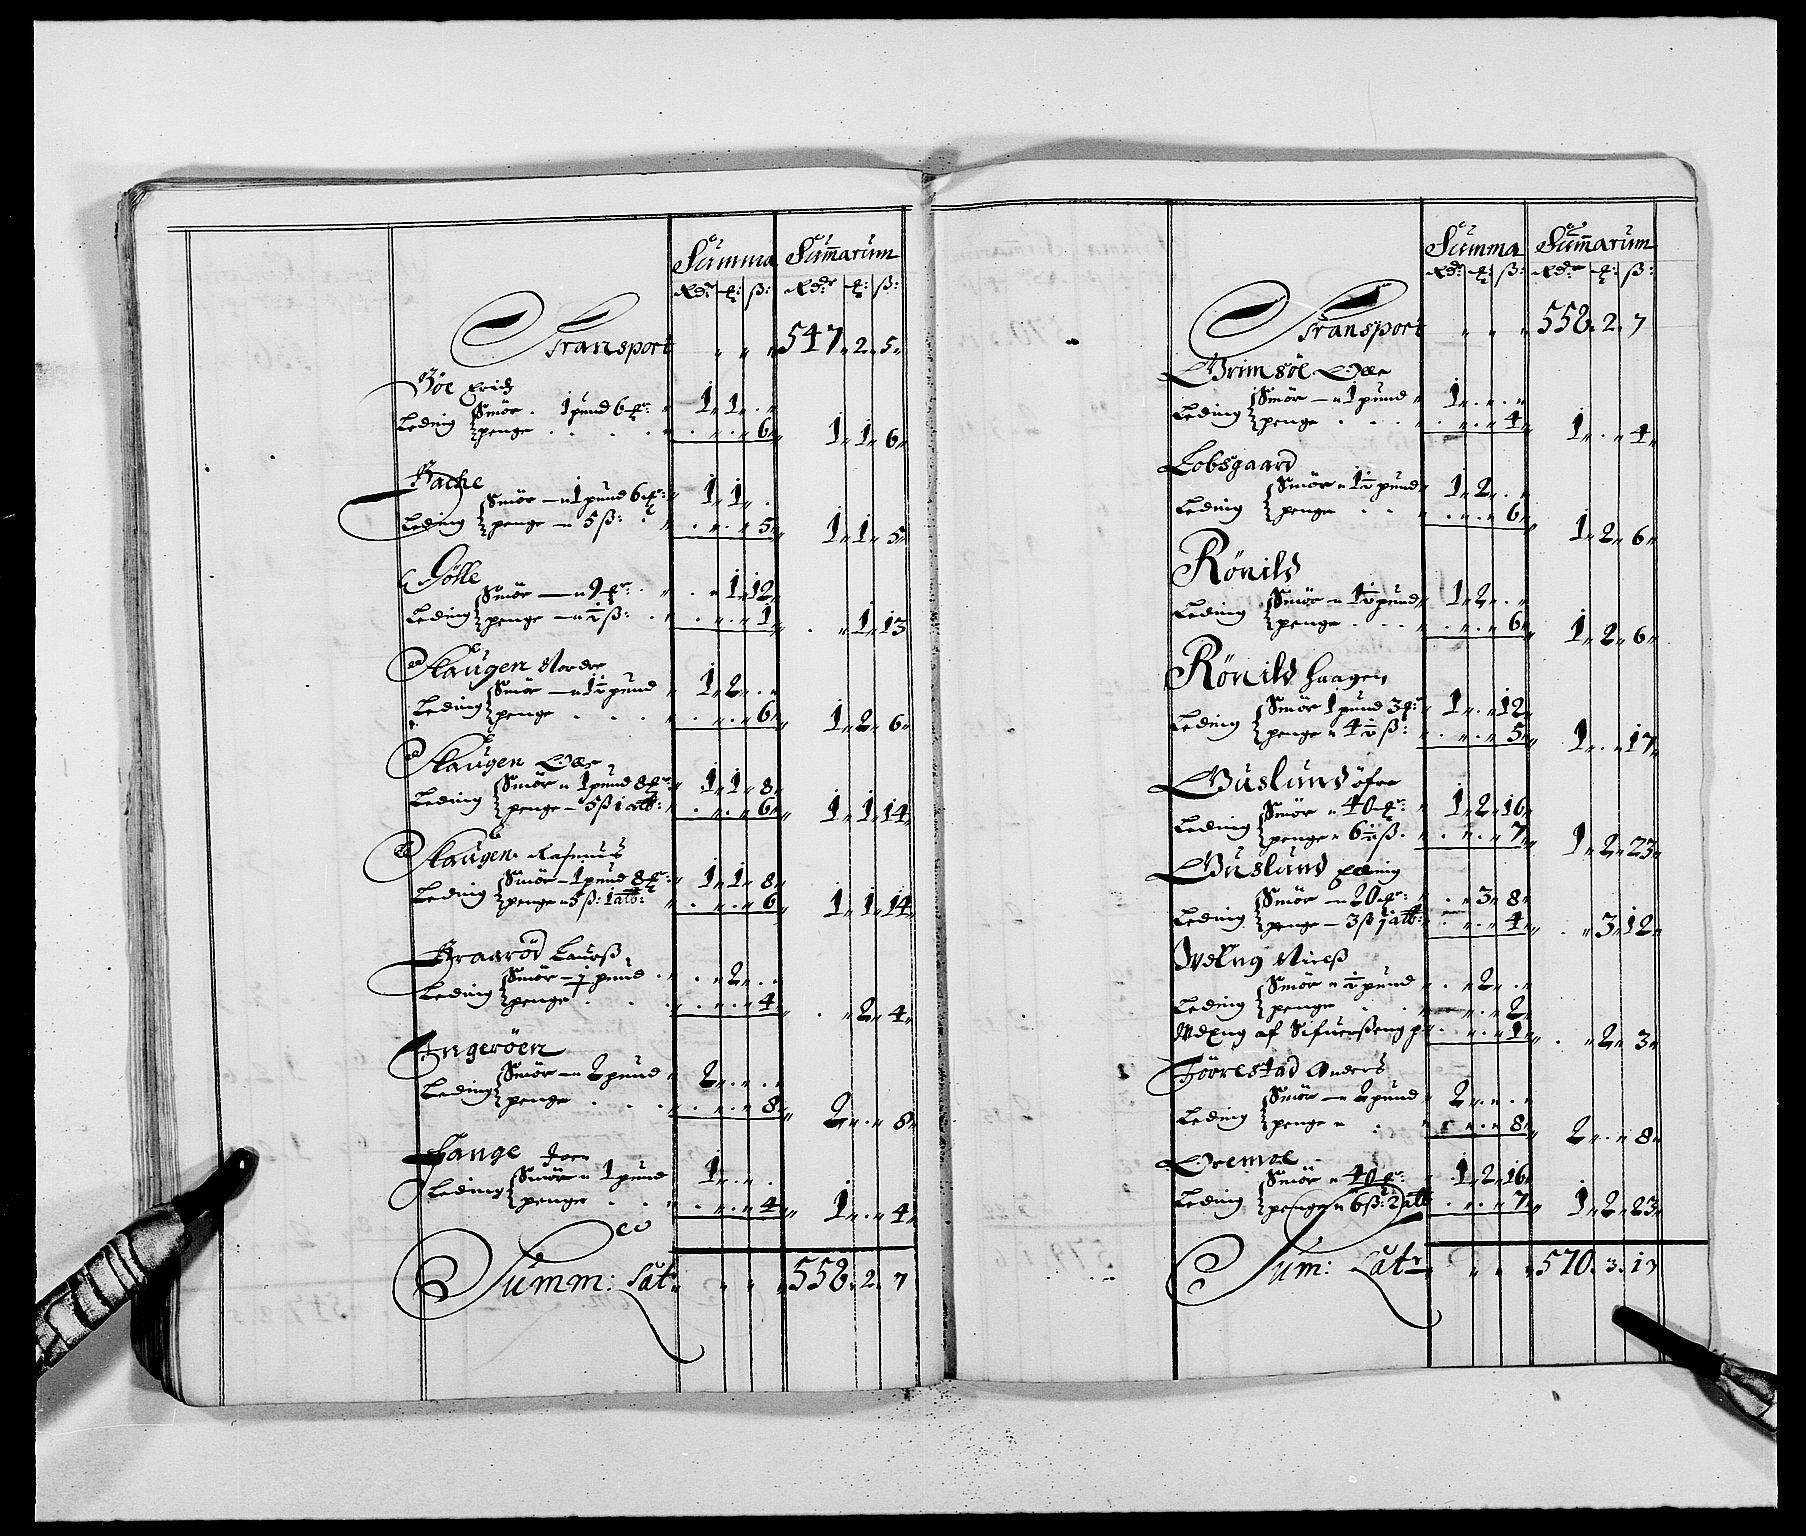 Summa Summarum
Rdr ꝗ: ß: Rdr ꝗ: ß:
Transport „ „ „ 547„ 2„ 5„
Böe Erich
Leding Smör . 1 pund 6 ꝗr: „ 1„ 1„ . „
penge . . . . „ . „ . „ 6„ 1„ 1„ 6„
Bache
Leding Smör — „ 1 pund 6 ꝗr: „ 1„ 1„ .
penge „ 5 ß: . „ . „ . „ 5„ 1„ 1„ 5„
Gölle
Leding Smör — „ 9 ꝗr: . „ . „ 1„ 12„
penge — „ ½ ß: . „ . „ . „ 1„ . „ 1„ 13
Haugen Nordre
Leding Smör — „ 1½ pund „ 1„ 2„ . „
penge . . . „ . „ . „ 6„ 1„ 2„ 6„
Haugen
Leding Smör „ 1 pund 8 ꝗr: „ 1„ 1„ 8„
penge — 5 ß 1 alb: „ . „ . „ 6„ 1„ 1„ 14„
Haugen Rasmus
Leding Smör — 1 pund 8 ꝗr: „ 1„ 1„ 8„
penge „ 5 ß: 1 alb: „ . „ . „ 6„ 1„ 1„ 14„
Braaröd Laurß
Leding Smör — ½ pund . „ . „ 2„ . .
penge . . „ . „ . „ 4„ . „ 2„ 4„
Ingeröen
Leding Smör — „ 2 pund „ 2„ . „ . „
penge . . . „ . „ . „ 8„ 2„ . „ 8„
Hange Joen
Leding Smör „ 1 pund 1„ . „ .
penge . . „ . „ . „ 4„ 1„ . „ 4„
Summ: Lat: „ „ „ 558„ 2„ 7
Summa Summarum
Rdr ꝗ: ß: Rdr ꝗ: ß:
Transport „ „ „ 558„ 2„ 7
Grimsöe
Leding Smör — „ 1 pund „ 1„ . „ . „
penge . . . „ . „ . „ 4„ 1„ . „ 4„
Lobsgaard
Leding Smör „ 1½ pund „ 1„ 2„ . „
penge . . „ . „ . „ 6„ 1„ 2„ 6„
Rönild
Leding Smör „ 1½ pund „ 1„ 2„ . „
penge . . . „ . „ . „ 6„ 1„ 2„ 6„
Rönild Haagen
Leding Smör 1 pund 3 ꝗ: „ 1„ . „ 12„
penge „ 4½ ß: „ . „ . „ 5„ 1„ . „ 17„
Buslund öfre
Leding Smör „ 40 ꝗr: „ 1„ 2„ 16„
penge „ 6½ ß. „ . „ . „ 7„ 1„ 2„ 23„
Buslund
Leding Smör — „ 20 ꝗr: „ . „ 3„ 8„
penge — 3 ß 1 alb: . „ . „ 4„ . „ 3„ 12„
Nielß
Leding Smör „ ½ pund „ . „ 2„ . „
penge . . . „ . „ 2„
af „ . „ . „ 1„ . „ 2„ 3„
Hörrestad Anders
Leding Smör — „ 2 pund „ 2„ . „ . „
penge „ . . „ . „ 8„ 2„ . „ 8„
Oremoe
Leding Smör „ 40 ꝗr: „ 1„ 2„ 16„
penge „ 6 ß: 2 alb . „ . „ 7„ 1„ 2„ 23„
Sum: Lat: „ „ „ 570„ 3„ 13